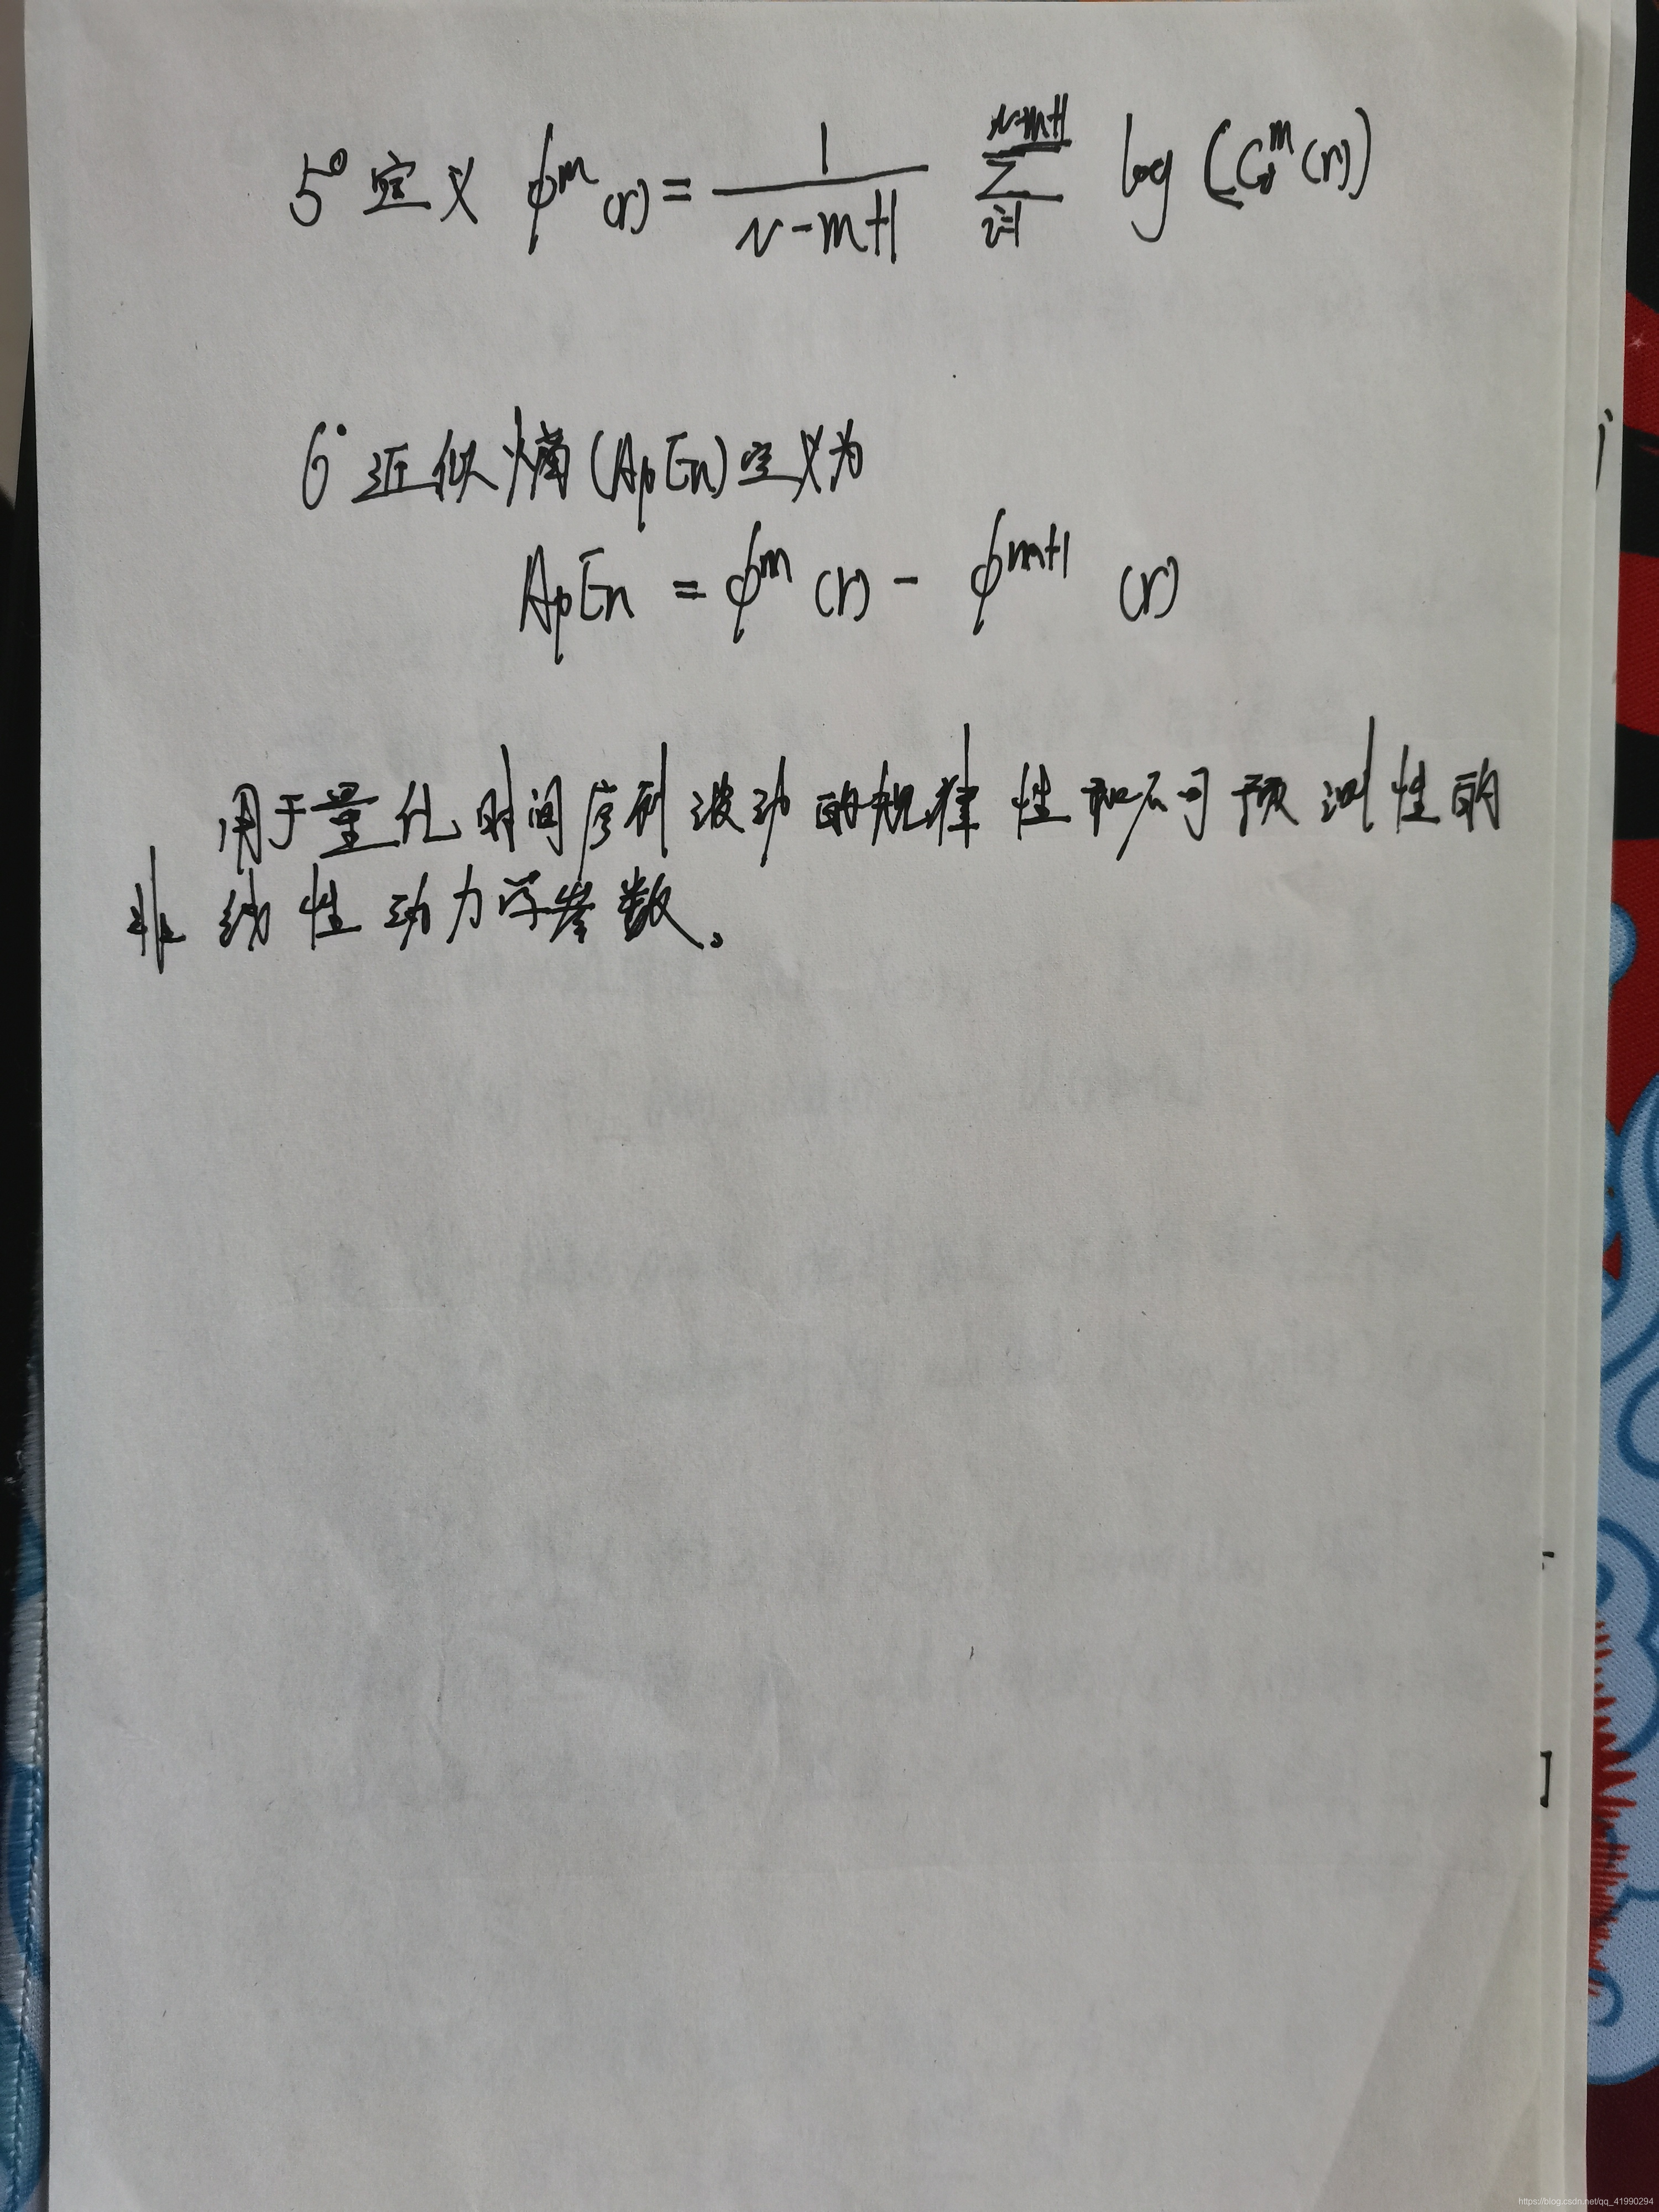 5° 定义 φ^m(r) = 1/(N-m+1) Σ_{i=1}^{N-m+1} log (C_i^m(r))
6° 近似熵(ApEn)定义为
ApEn = φ^m (r) - φ^{m+1} (r)
用于量化时间序列波动的规律性和不可预测性的
非线性动力学参数。
https://blog.csdn.net/qq_41990294